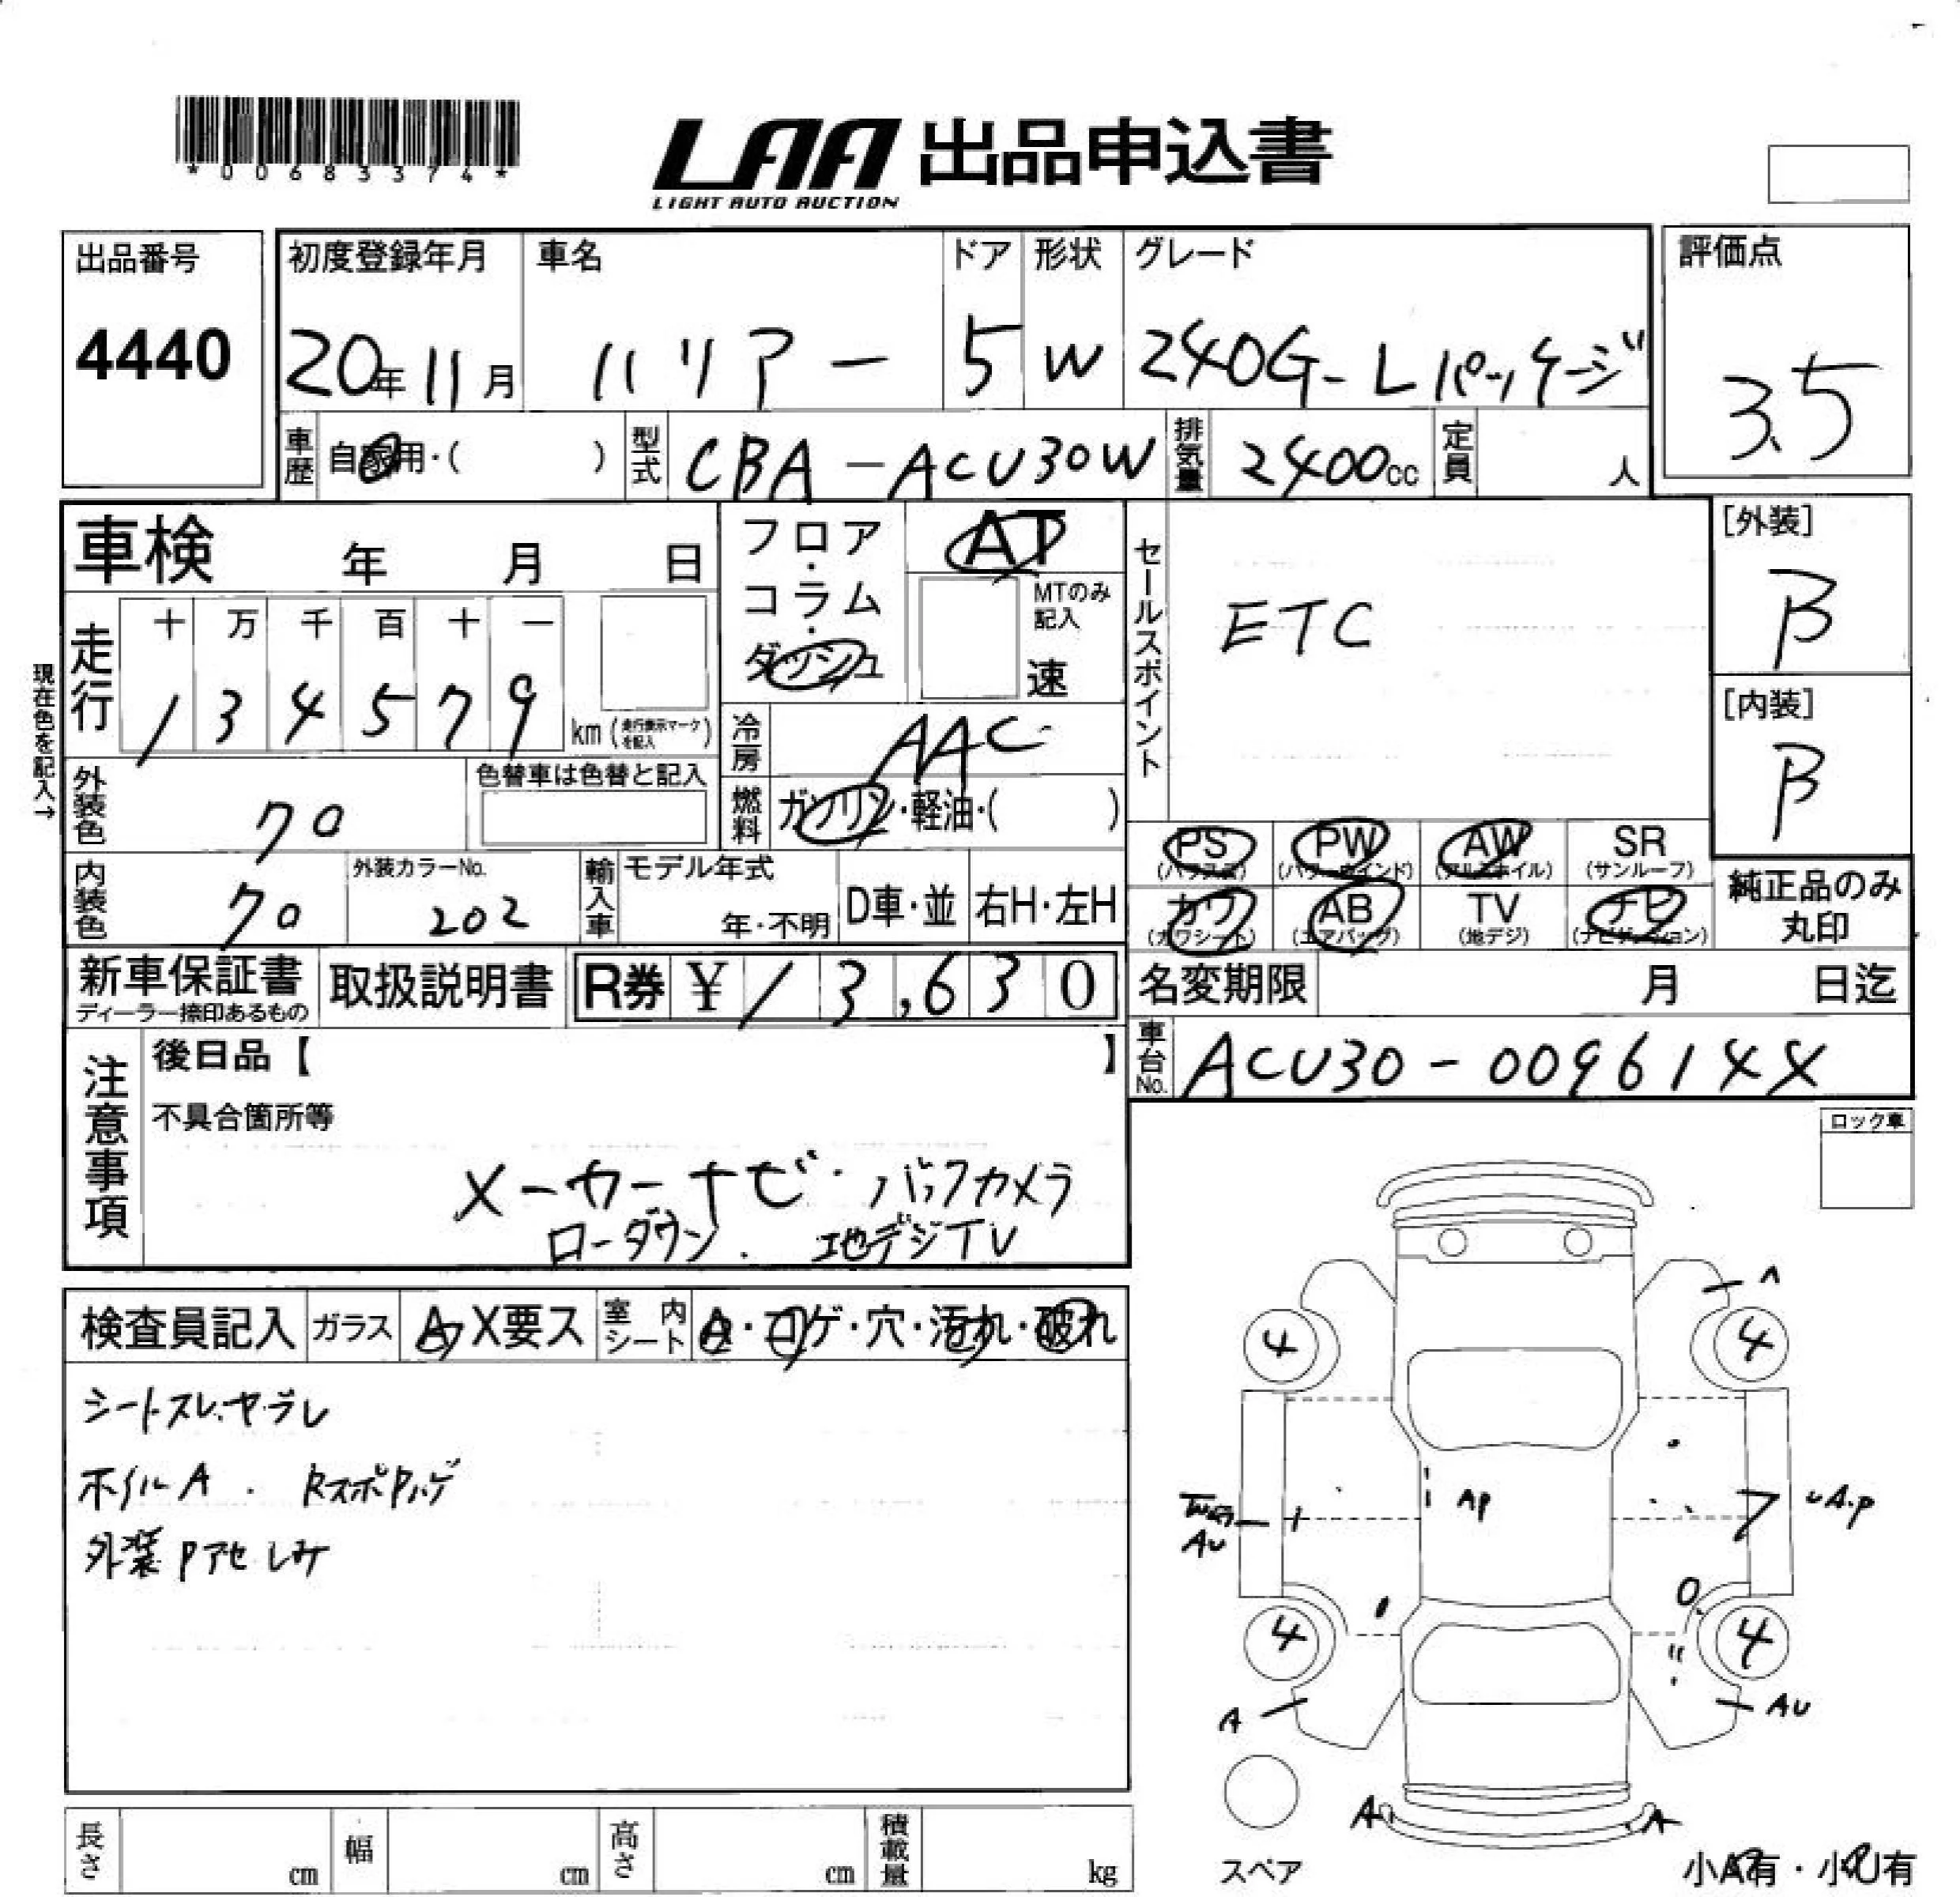 *00683374*
LAA 出品申込書
LIGHT AUTO AUCTION
出品番号
4440
初度登録年月
20年11月
車名
ハリアー
ドア
5
形状
W
グレード
240G-Lパッケージ
評価点
3.5
車歴 自家用・( )
型式 CBA-ACU30W
排気量 2400cc
定員 人
車検 年 月 日
フロア・コラム・ダッシュ
AT
MTのみ記入
速
セールスポイント
ETC
[外装]
B
[内装]
B
現在色を記入→
走行
十 万 千 百 十 一
1 3 4 5 7 9
km(走行表示マークを記入)
冷房 AAC
外装色 クロ
色替車は色替と記入
燃料 ガソリン・軽油・( )
PS (パワステ)
PW (パワーウインド)
AW (アルミホイル)
SR (サンルーフ)
内装色 クロ
外装カラーNo.
202
輸入車
モデル年式
年・不明
D車・並
右H・左H
カワ (カワシート)
AB (エアバッグ)
TV (地デジ)
ナビ (ナビゲーション)
純正品のみ丸印
新車保証書
ディーラー捺印あるもの
取扱説明書
R券 ¥13,630
名変期限 月 日迄
車台No. ACU30-009614X
注意事項
後日品【 】
不具合箇所等
メーカーナビ・バックカメラ
ローダウン. 地デジTV
ロック車
検査員記入
ガラス A X要ス
室内シート A・コゲ・穴・汚れ・破れ
シートスレ・ヤブレ
ホイルA . RスポPハゲ
外装Pアセ シミ
A
4
4
AP
AU
UA.P
4
4
A
AU
A
A
スペア
小A有・小U有
長さ cm
幅 cm
高さ cm
積載量 kg